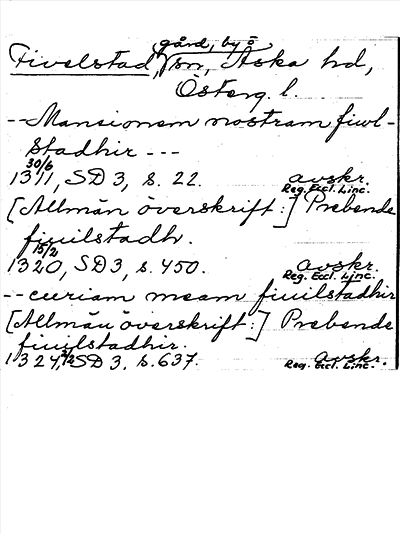 gård, by o
Fivelstad, sn, Aska hd,
Österg. l.
-- Mansionem nostram fiwl-
stadhir ---
30/6
1311, SD 3, s. 22. avskr.
Reg. Eccl. Linc.
[Allmän överskrift:] Prebende
fiuilstadh.
15/2
1320, SD 3, s. 450. avskr.
Reg. Eccl. Linc.
-- curiam meam fiuilstadhir
[Allmän överskrift:] Prebende
fiuilstadhir.
1324, SD 3, s. 637. avskr.
Reg. Eccl. Linc.